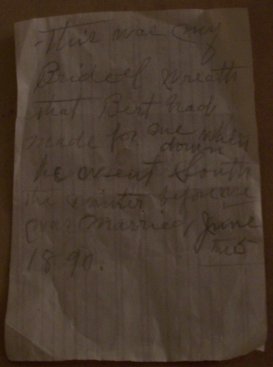 This was my
Bridel Wreath
that Bert had
made for me when
down
he went South
the winter before we
was married June
the 5
1890.